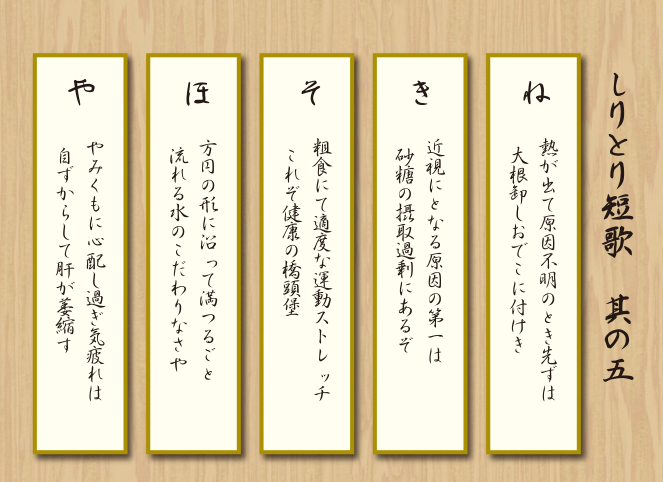 しりとり短歌　其の五
ね
熱が出て原因不明のとき先ずは
大根卸しおでこに付けき
き
近視にとなる原因の第一は
砂糖の摂取過剰にあるぞ
そ
粗食にて適度な運動ストレッチ
これぞ健康の橋頭堡
ほ
方円の形に沿って満つるごと
流れる水のこだわりなさや
や
やみくもに心配し過ぎ気疲れは
自ずからして肝が萎縮す